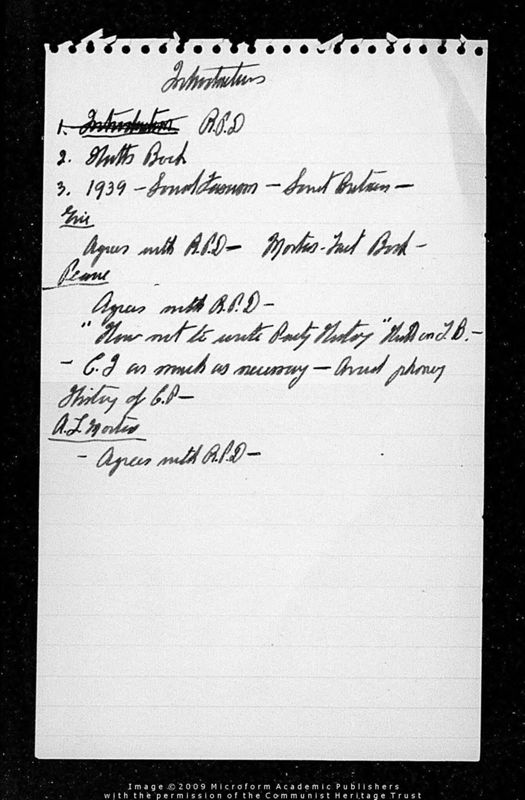 Introduction
1. Introduction R.P.D
2. Hutts Book
3. 1939 – Social Fascism – Soviet Britain –
Eric
Agrees with R.P.D – Morton – First Book –
Pearce
Agrees with R.P.D –
"How not to write Party History" Hutt on T.B. –
– C.I as much as necessary – Avoid phoney
History of C.P –
A.L Morton
– Agrees with R.P.D –
Image ©2009 Microform Academic Publishers
with the permission of the Communist Heritage Trust